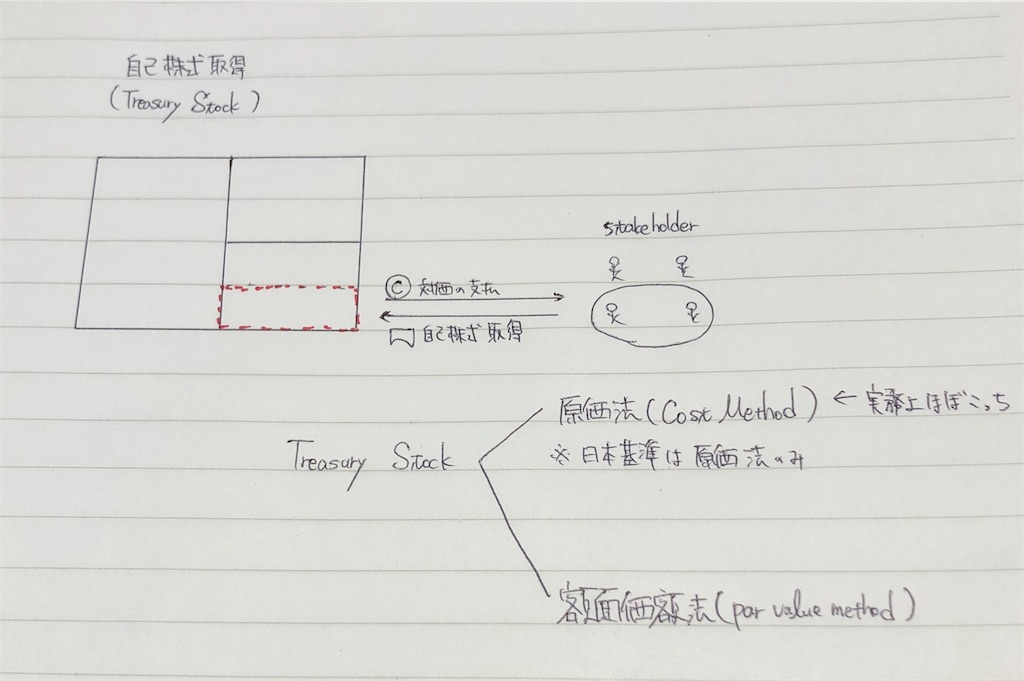 自己株式取得
(Treasury Stock)
stakeholder
© 対価の支払
自己株式取得
原価法(Cost Method) ← 実務上ほぼこっち
Treasury Stock
※日本基準は原価法のみ
額面価額法(par value method)